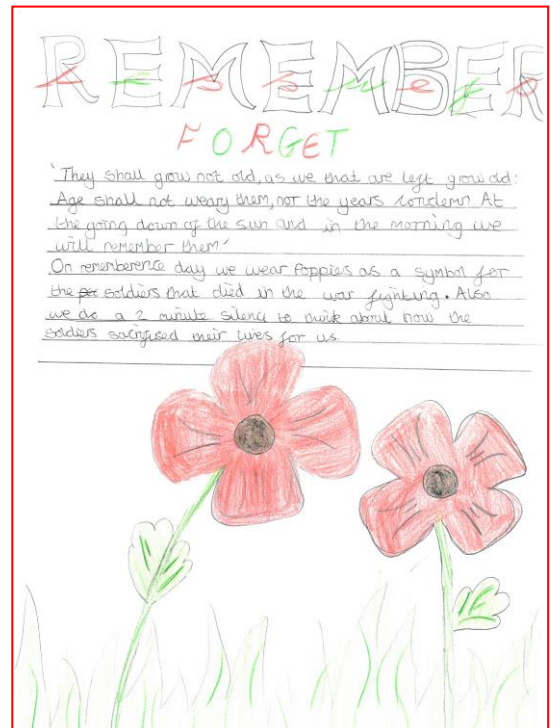 REMEMBER
Lest we
FORGET
'They shall grow not old, as we that are left grow old:
Age shall not weary them, nor the years condemn. At
the going down of the sun and in the morning we
will remember them'
On rememberence day we wear Poppies as a symbol for
the soldiers that died in the war fighting. Also
we do a 2 minute silence to think about how the
soldiers sacrifised their lives for us.